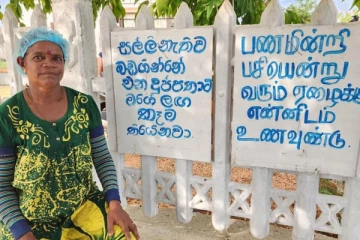 සල්ලිනැතිව
බඩගින්නේ
එන දුප්පතාට
මගේ ලඟ
කෑම
තියෙනවා.
பணமின்றி
பசியென்று
வரும் ஏழைக்கு
என்னிடம்
உணவுண்டு.